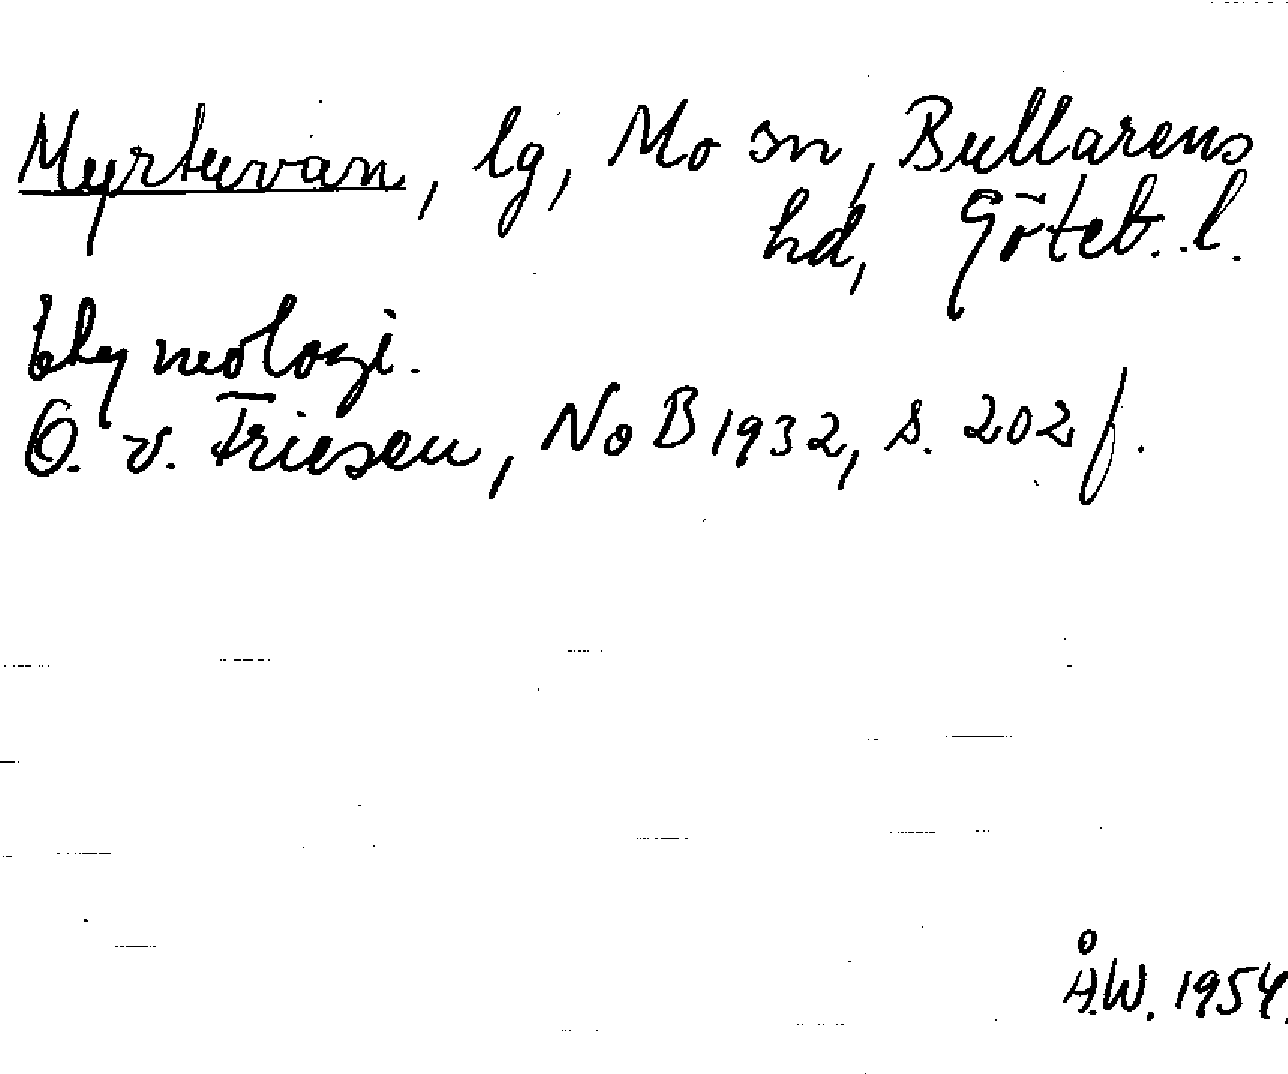 Myrtuvan, lg, Mo sn, Bullarens
hd, Göteb. l.
Etymologi.
O. v. Friesen, NoB 1932, s. 202 f.
Å.W. 1954.